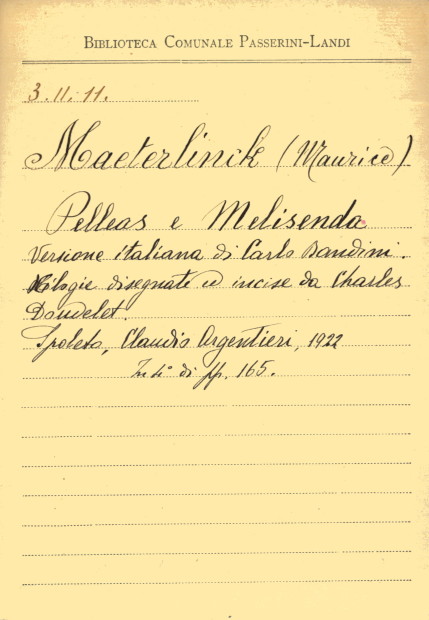 BIBLIOTECA COMUNALE PASSERINI-LANDI
3.11.11.
Maeterlinck (Maurice)
Pelleas e Melisenda
Versione italiana di Carlo Bandini.
Xilogie disegnate ed incise da Charles
Doudelet.
Spoleto, Claudio Argentieri, 1922
In 4° di pp. 165.